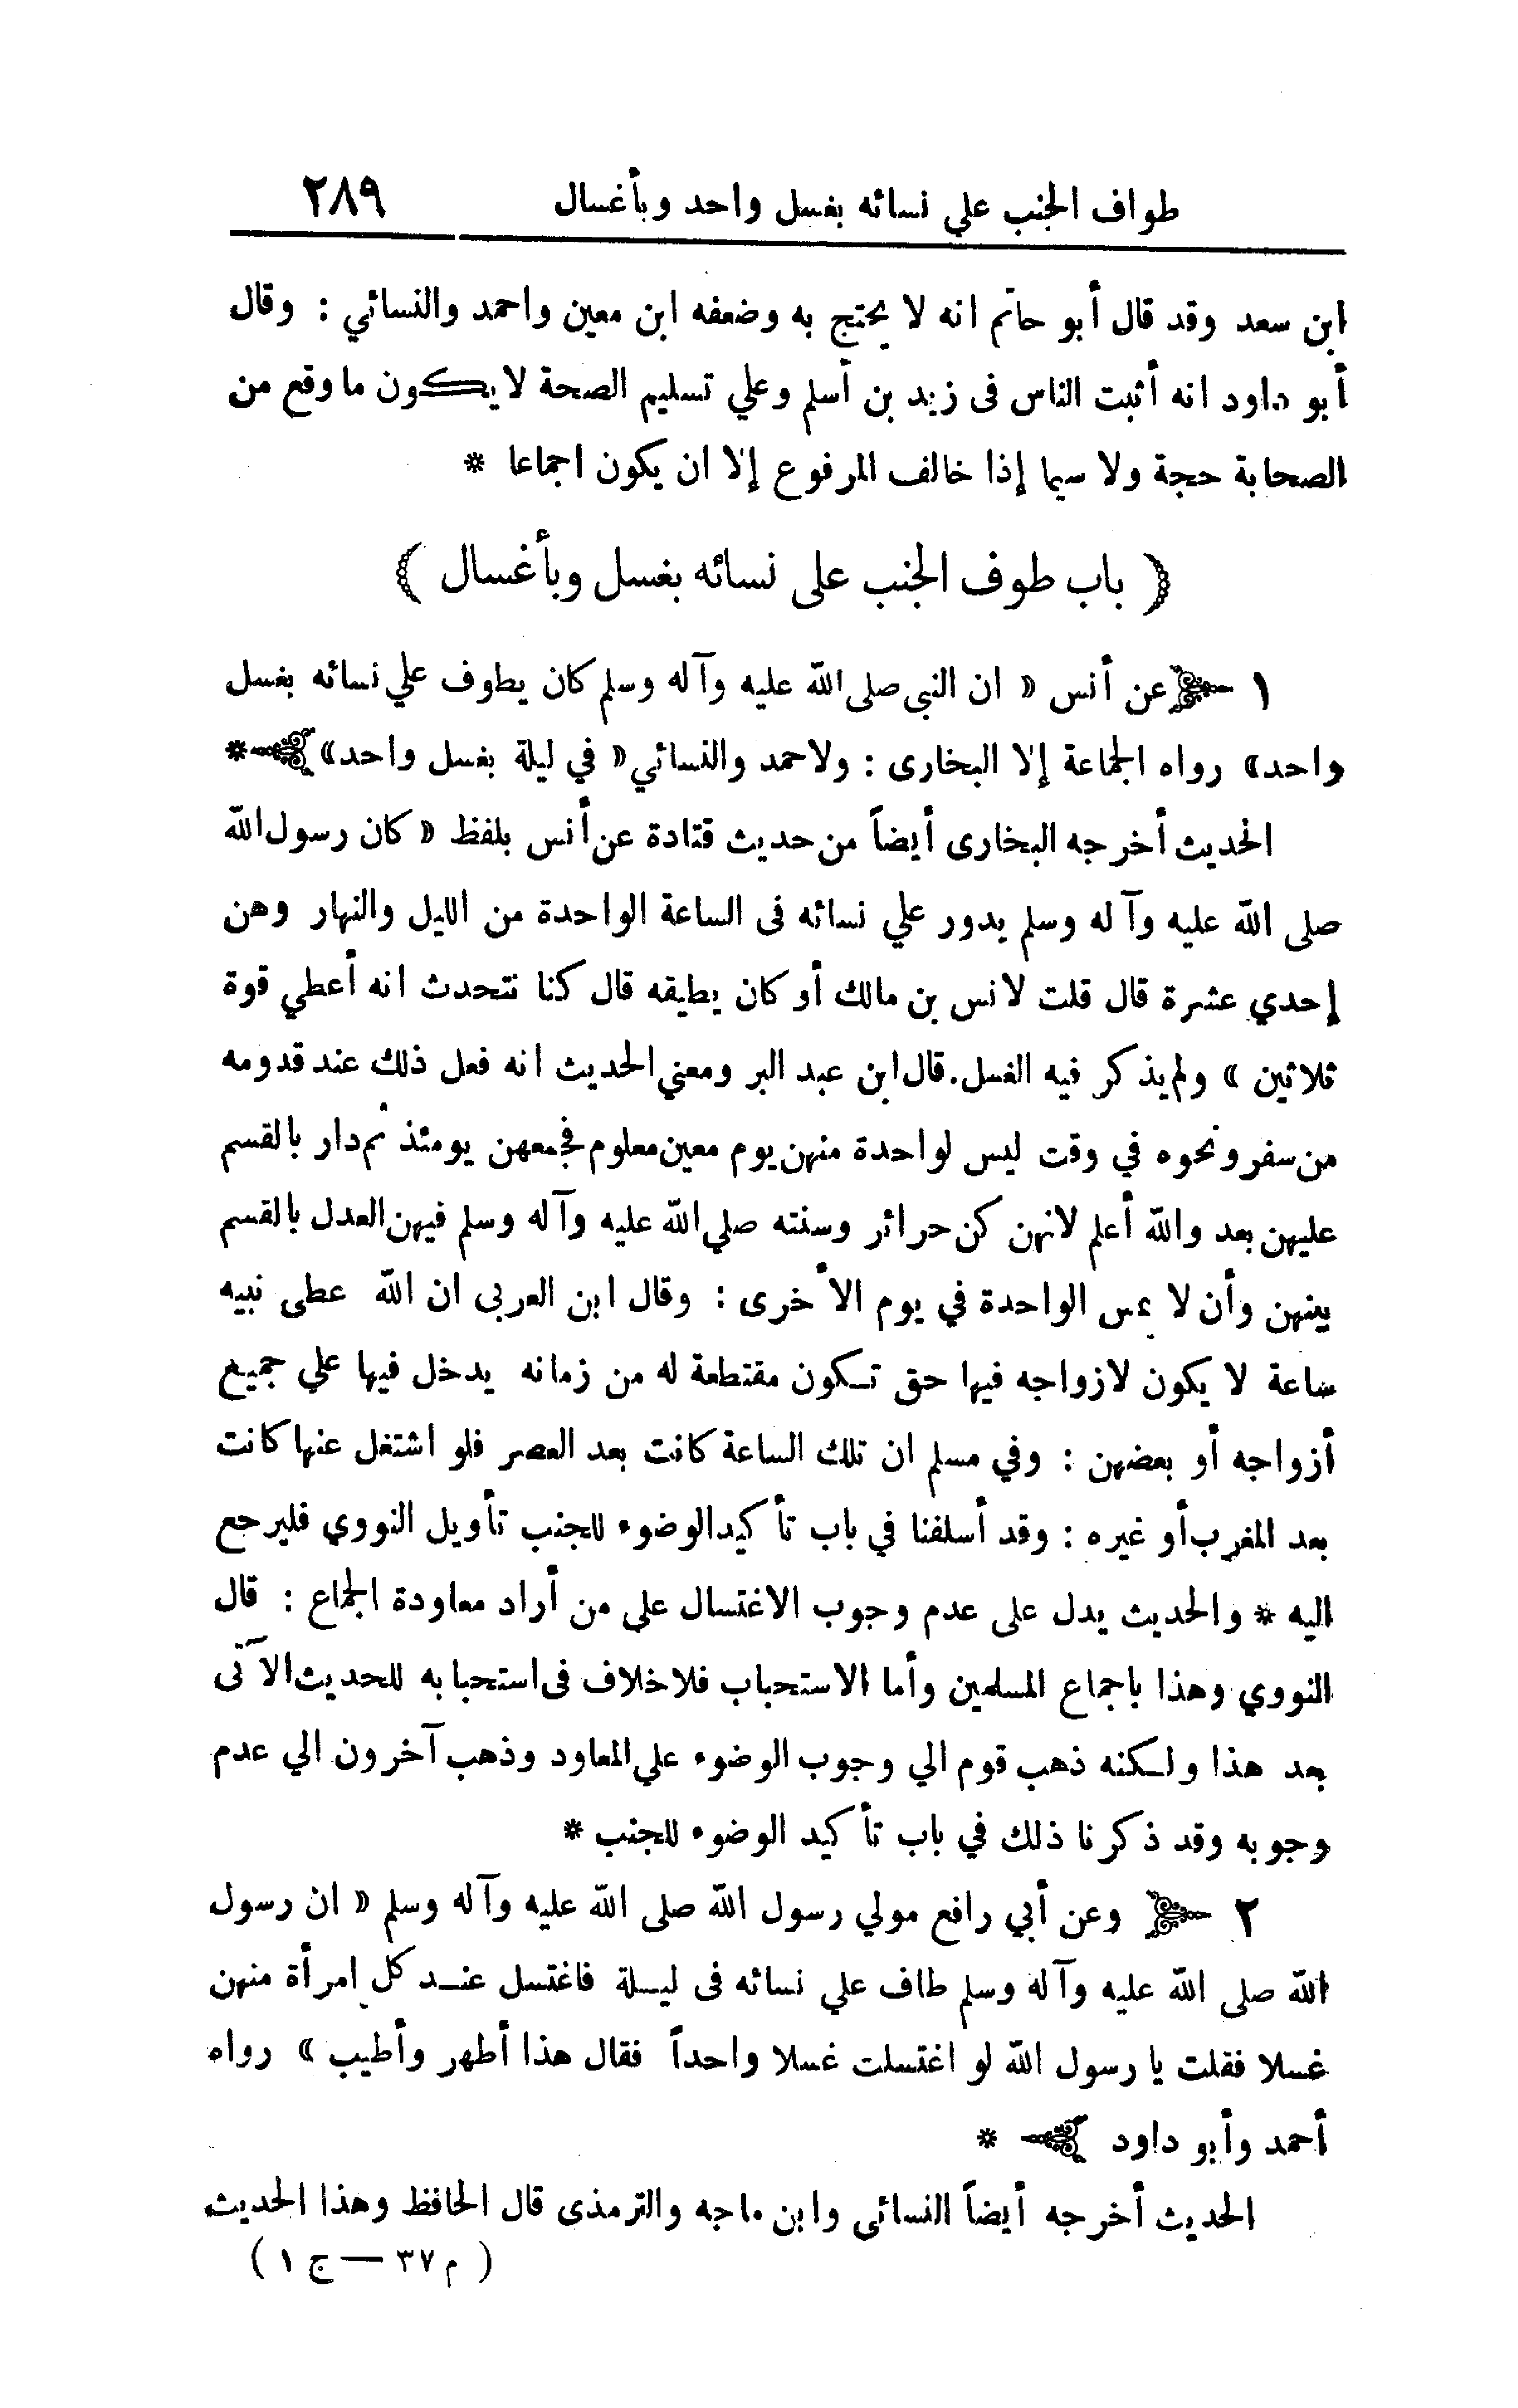 طواف الجنب علي نسائه بغسل واحد وبأغسال ٢٨٩
ابن سعد وقد قال أبو حاتم انه لا يحتج به وضعفه ابن معين واحمد والنسائي : وقال
أبو داود انه أثبت الناس فى زيد بن أسلم وعلي تسليم الصحة لا يكون ما وقع من
الصحابة حجة ولا سيما إذا خالف المرفوع إلا ان يكون اجماعا *
﴿ باب طوف الجنب على نسائه بغسل وبأغسال ﴾
١ عن أنس « ان النبي صلى الله عليه وآله وسلم كان يطوف علي نسائه بغسل
واحد» رواه الجماعة إلا البخارى : ولاحمد والنسائي « في ليلة بغسل واحد» *
الحديث أخرجه البخارى أيضاً من حديث قتادة عن أنس بلفظ « كان رسول الله
صلى الله عليه وآله وسلم يدور علي نسائه فى الساعة الواحدة من الليل والنهار وهن
إحدي عشرة قال قلت لانس بن مالك أو كان يطيقه قال كنا نتحدث انه أعطي قوة
ثلاثين » ولم يذكر فيه الغسل. قال ابن عبد البر ومعني الحديث انه فعل ذلك عند قدومه
من سفر ونحوه في وقت ليس لواحدة منهن يوم معين معلوم فجمعهن يومئذ ثم دار بالقسم
عليهن بعد والله أعلم لانهن كن حرائر وسنته صلي الله عليه وآله وسلم فيهن العدل بالقسم
بينهن وأن لا يمس الواحدة في يوم الأخرى : وقال ابن العربى ان الله عطى نبيه
ساعة لا يكون لازواجه فيها حق تكون مقتطعة له من زمانه يدخل فيها علي جميع
أزواجه أو بعضهن : وفي مسلم ان تلك الساعة كانت بعد العصر فلو اشتغل عنها كانت
بعد المغرب أو غيره : وقد أسلفنا في باب تأكيد الوضوء للجنب تأويل النووي فليرجع
اليه * والحديث يدل على عدم وجوب الاغتسال على من أراد معاودة الجماع : قال
النووي وهذا باجماع المسلمين وأما الاستحباب فلا خلاف فى استحبابه للحديث الآتى
بعد هذا ولكنه ذهب قوم الي وجوب الوضوء علي المعاود وذهب آخرون الي عدم
وجوبه وقد ذكرنا ذلك في باب تأكيد الوضوء للجنب *
٢ وعن أبي رافع مولي رسول الله صلى الله عليه وآله وسلم « ان رسول
الله صلى الله عليه وآله وسلم طاف علي نسائه فى ليلة فاغتسل عند كل امرأة منهن
غسلا فقلت يا رسول الله لو اغتسلت غسلا واحداً فقال هذا أطهر وأطيب » رواه
أحمد وأبو داود *
الحديث أخرجه أيضاً النسائى وابن ماجه والترمذى قال الحافظ وهذا الحديث
( م ٣٧ — ج ١ )